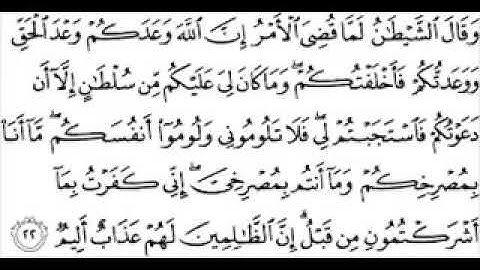 وَقَالَ ٱلشَّيْطَٰنُ لَمَّا قُضِىَ ٱلْأَمْرُ إِنَّ ٱللَّهَ وَعَدَكُمْ وَعْدَ ٱلْحَقِّ
وَوَعَدتُّكُمْ فَأَخْلَفْتُكُمْ ۖ وَمَا كَانَ لِىَ عَلَيْكُم مِّن سُلْطَٰنٍ إِلَّآ أَن
دَعَوْتُكُمْ فَٱسْتَجَبْتُمْ لِى ۖ فَلَا تَلُومُونِى وَلُومُوٓا۟ أَنفُسَكُم ۖ مَّآ أَنَا۠
بِمُصْرِخِكُمْ وَمَآ أَنتُم بِمُصْرِخِىَّ ۖ إِنِّى كَفَرْتُ بِمَآ
أَشْرَكْتُمُونِ مِن قَبْلُ ۗ إِنَّ ٱلظَّٰلِمِينَ لَهُمْ عَذَابٌ أَلِيمٌ ٢٢